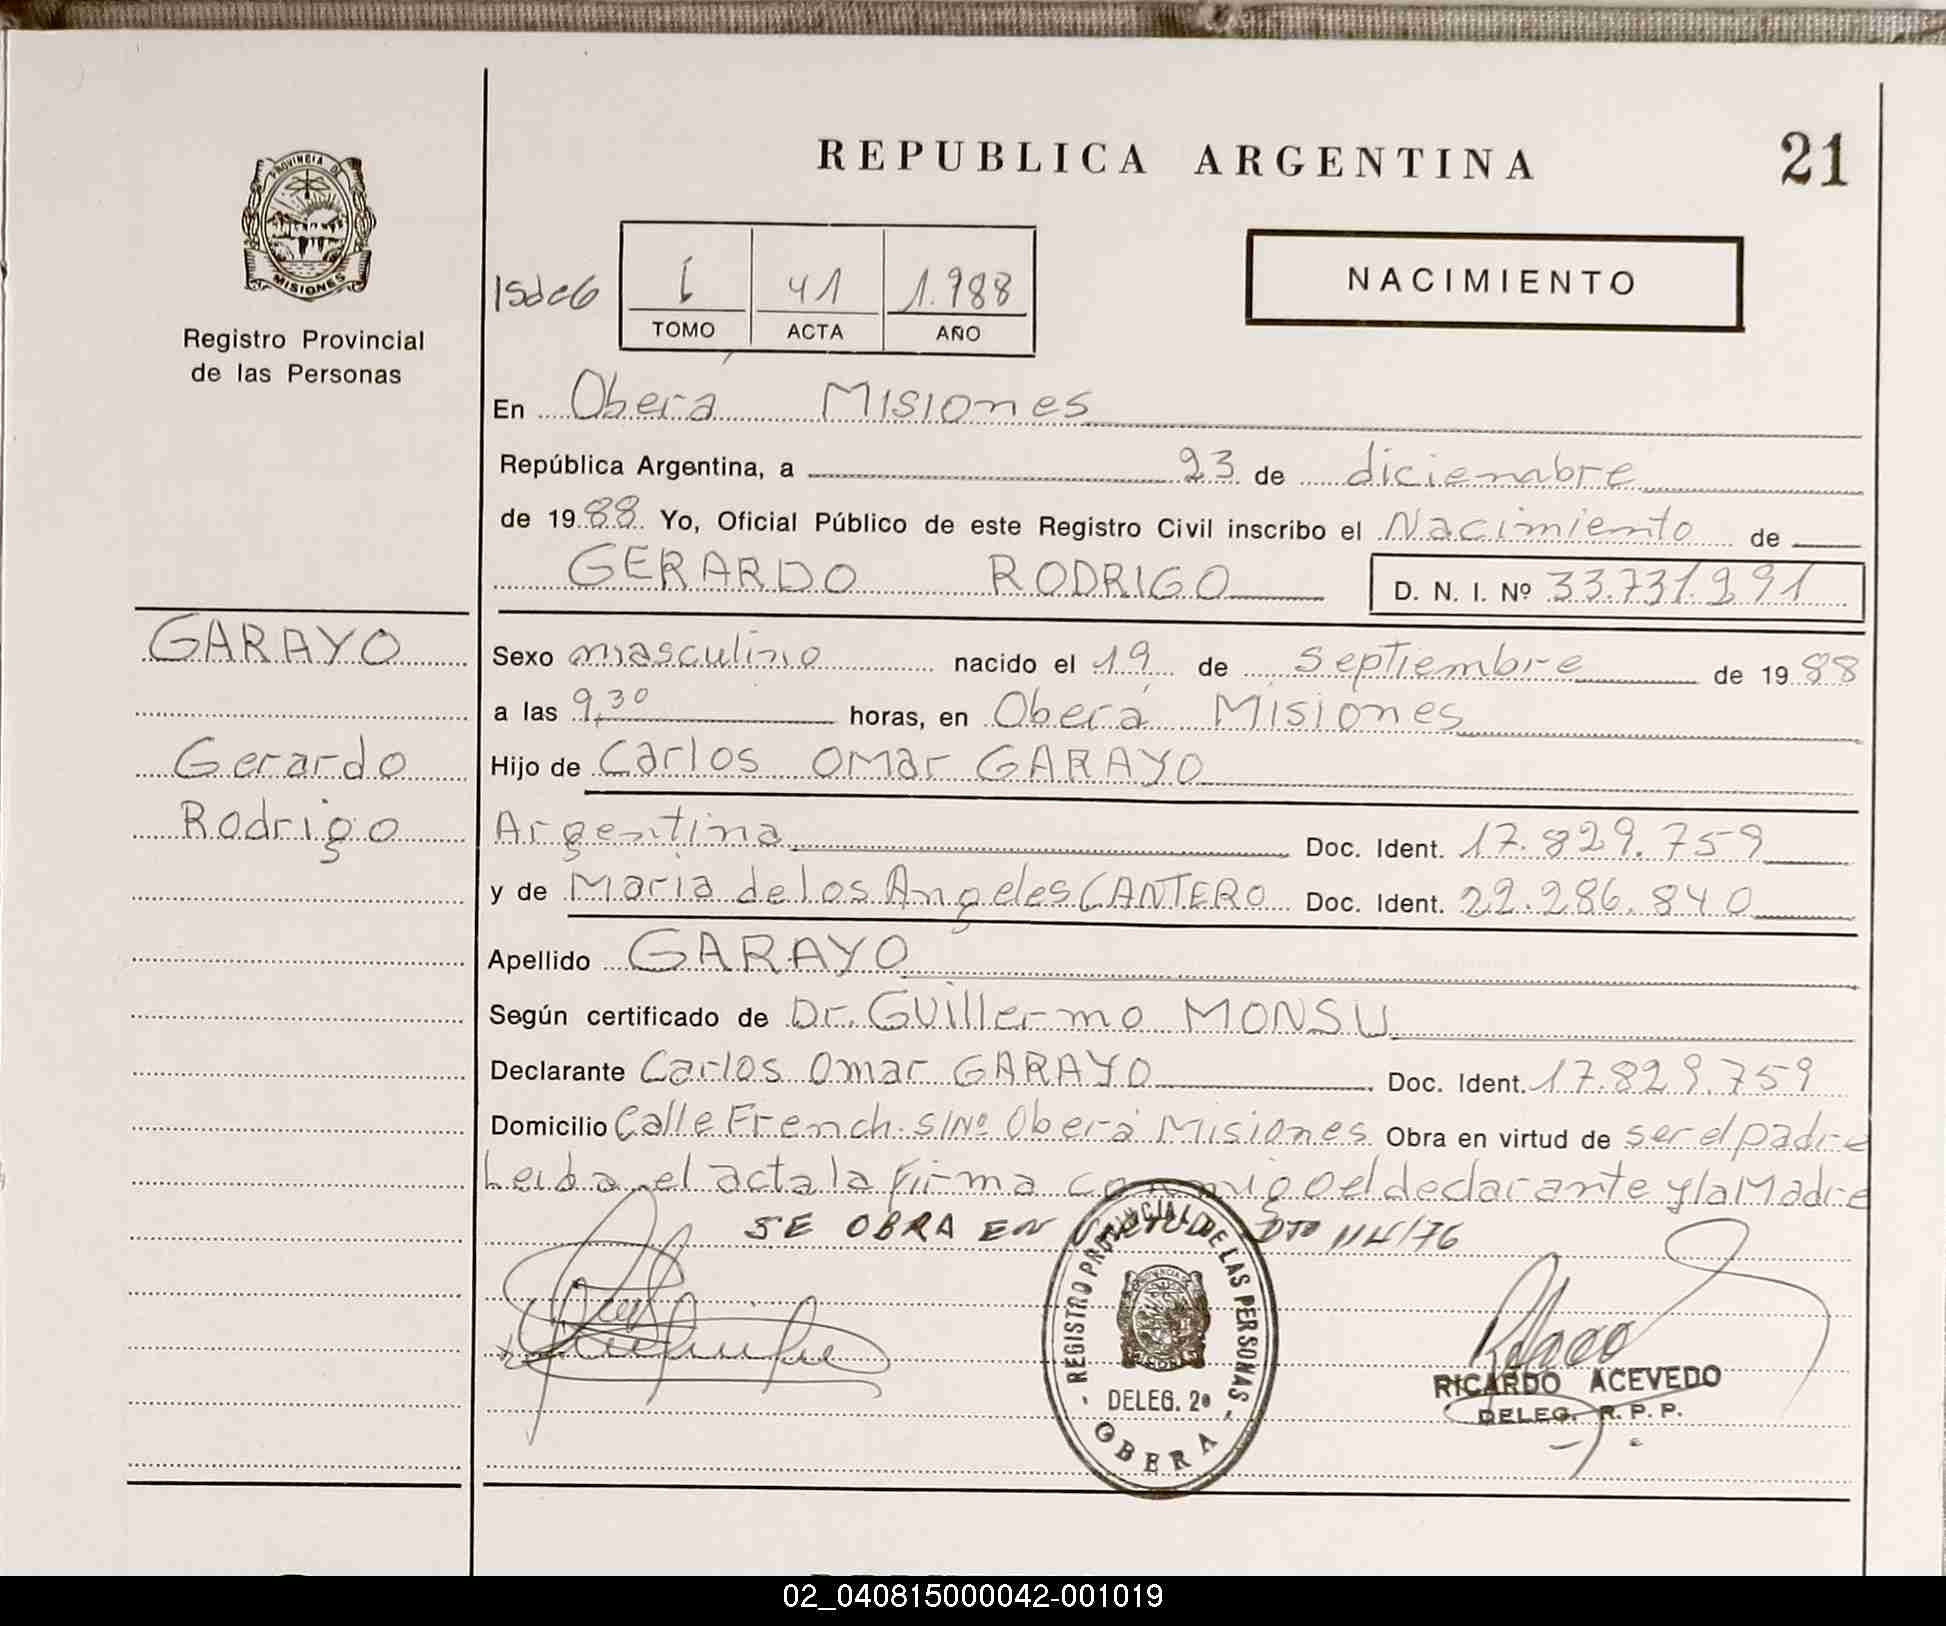 REPUBLICA ARGENTINA
21
PROVINCIA DE
MISIONES
Registro Provincial
de las Personas
NACIMIENTO
41 1.988
TOMO ACTA AÑO
En Oberá Misiones
República Argentina, a 23 de diciembre
de 1988 Yo, Oficial Público de este Registro Civil inscribo el Nacimiento de
GERARDO RODRIGO D. N. I. Nº 33.731.991
GARAYO
Gerardo
Rodrigo
Sexo masculino nacido el 19 de septiembre de 1988
a las 9,30 horas, en Oberá Misiones
Hijo de Carlos Omar GARAYO
Argentina Doc. Ident. 17.829.759
y de Maria de los Angeles CANTERO Doc. Ident. 22.286.840
Apellido GARAYO
Según certificado de Dr. Guillermo MONSU
Declarante Carlos Omar GARAYO Doc. Ident. 17.829.759
Domicilio Calle French S/Nº Oberá Misiones Obra en virtud de ser el padre
Leida el acta la firma conmigo el declarante y la Madre
SE OBRA EN DTO 114/76
- REGISTRO PROVINCIAL DE LAS PERSONAS -
MISIONES
DELEG. 2ª
OBERA
RICARDO ACEVEDO
DELEG. R. P. P.
02_040815000042-001019